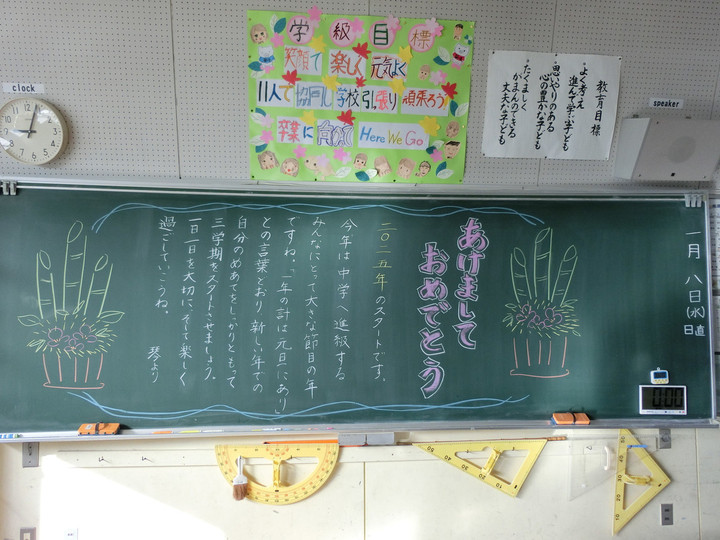 clock
学級目標
笑顔で 楽しく 元気よく
11人で協同し学校引っ張り頑張ろう
卒業に向かって Here We Go
教育目標
・よく考え
進んで学ぶ子ども
・思いやりのある
心の豊かな子ども
・たくましく
がまんのできる
丈夫な子ども
speaker
一月八日(水)
日直
あけまして
おめでとう
二〇二五年のスタートです。
今年は中学へ進級する
みんなにとって大きな節目の年
ですね。「一年の計は元日にあり」
との言葉どおり新しい年での
自分のめあてをしっかりもって
三学期をスタートさせましょう。
一日一日を大切に、そして楽しく
過ごしていこうね。
琴より
0:00